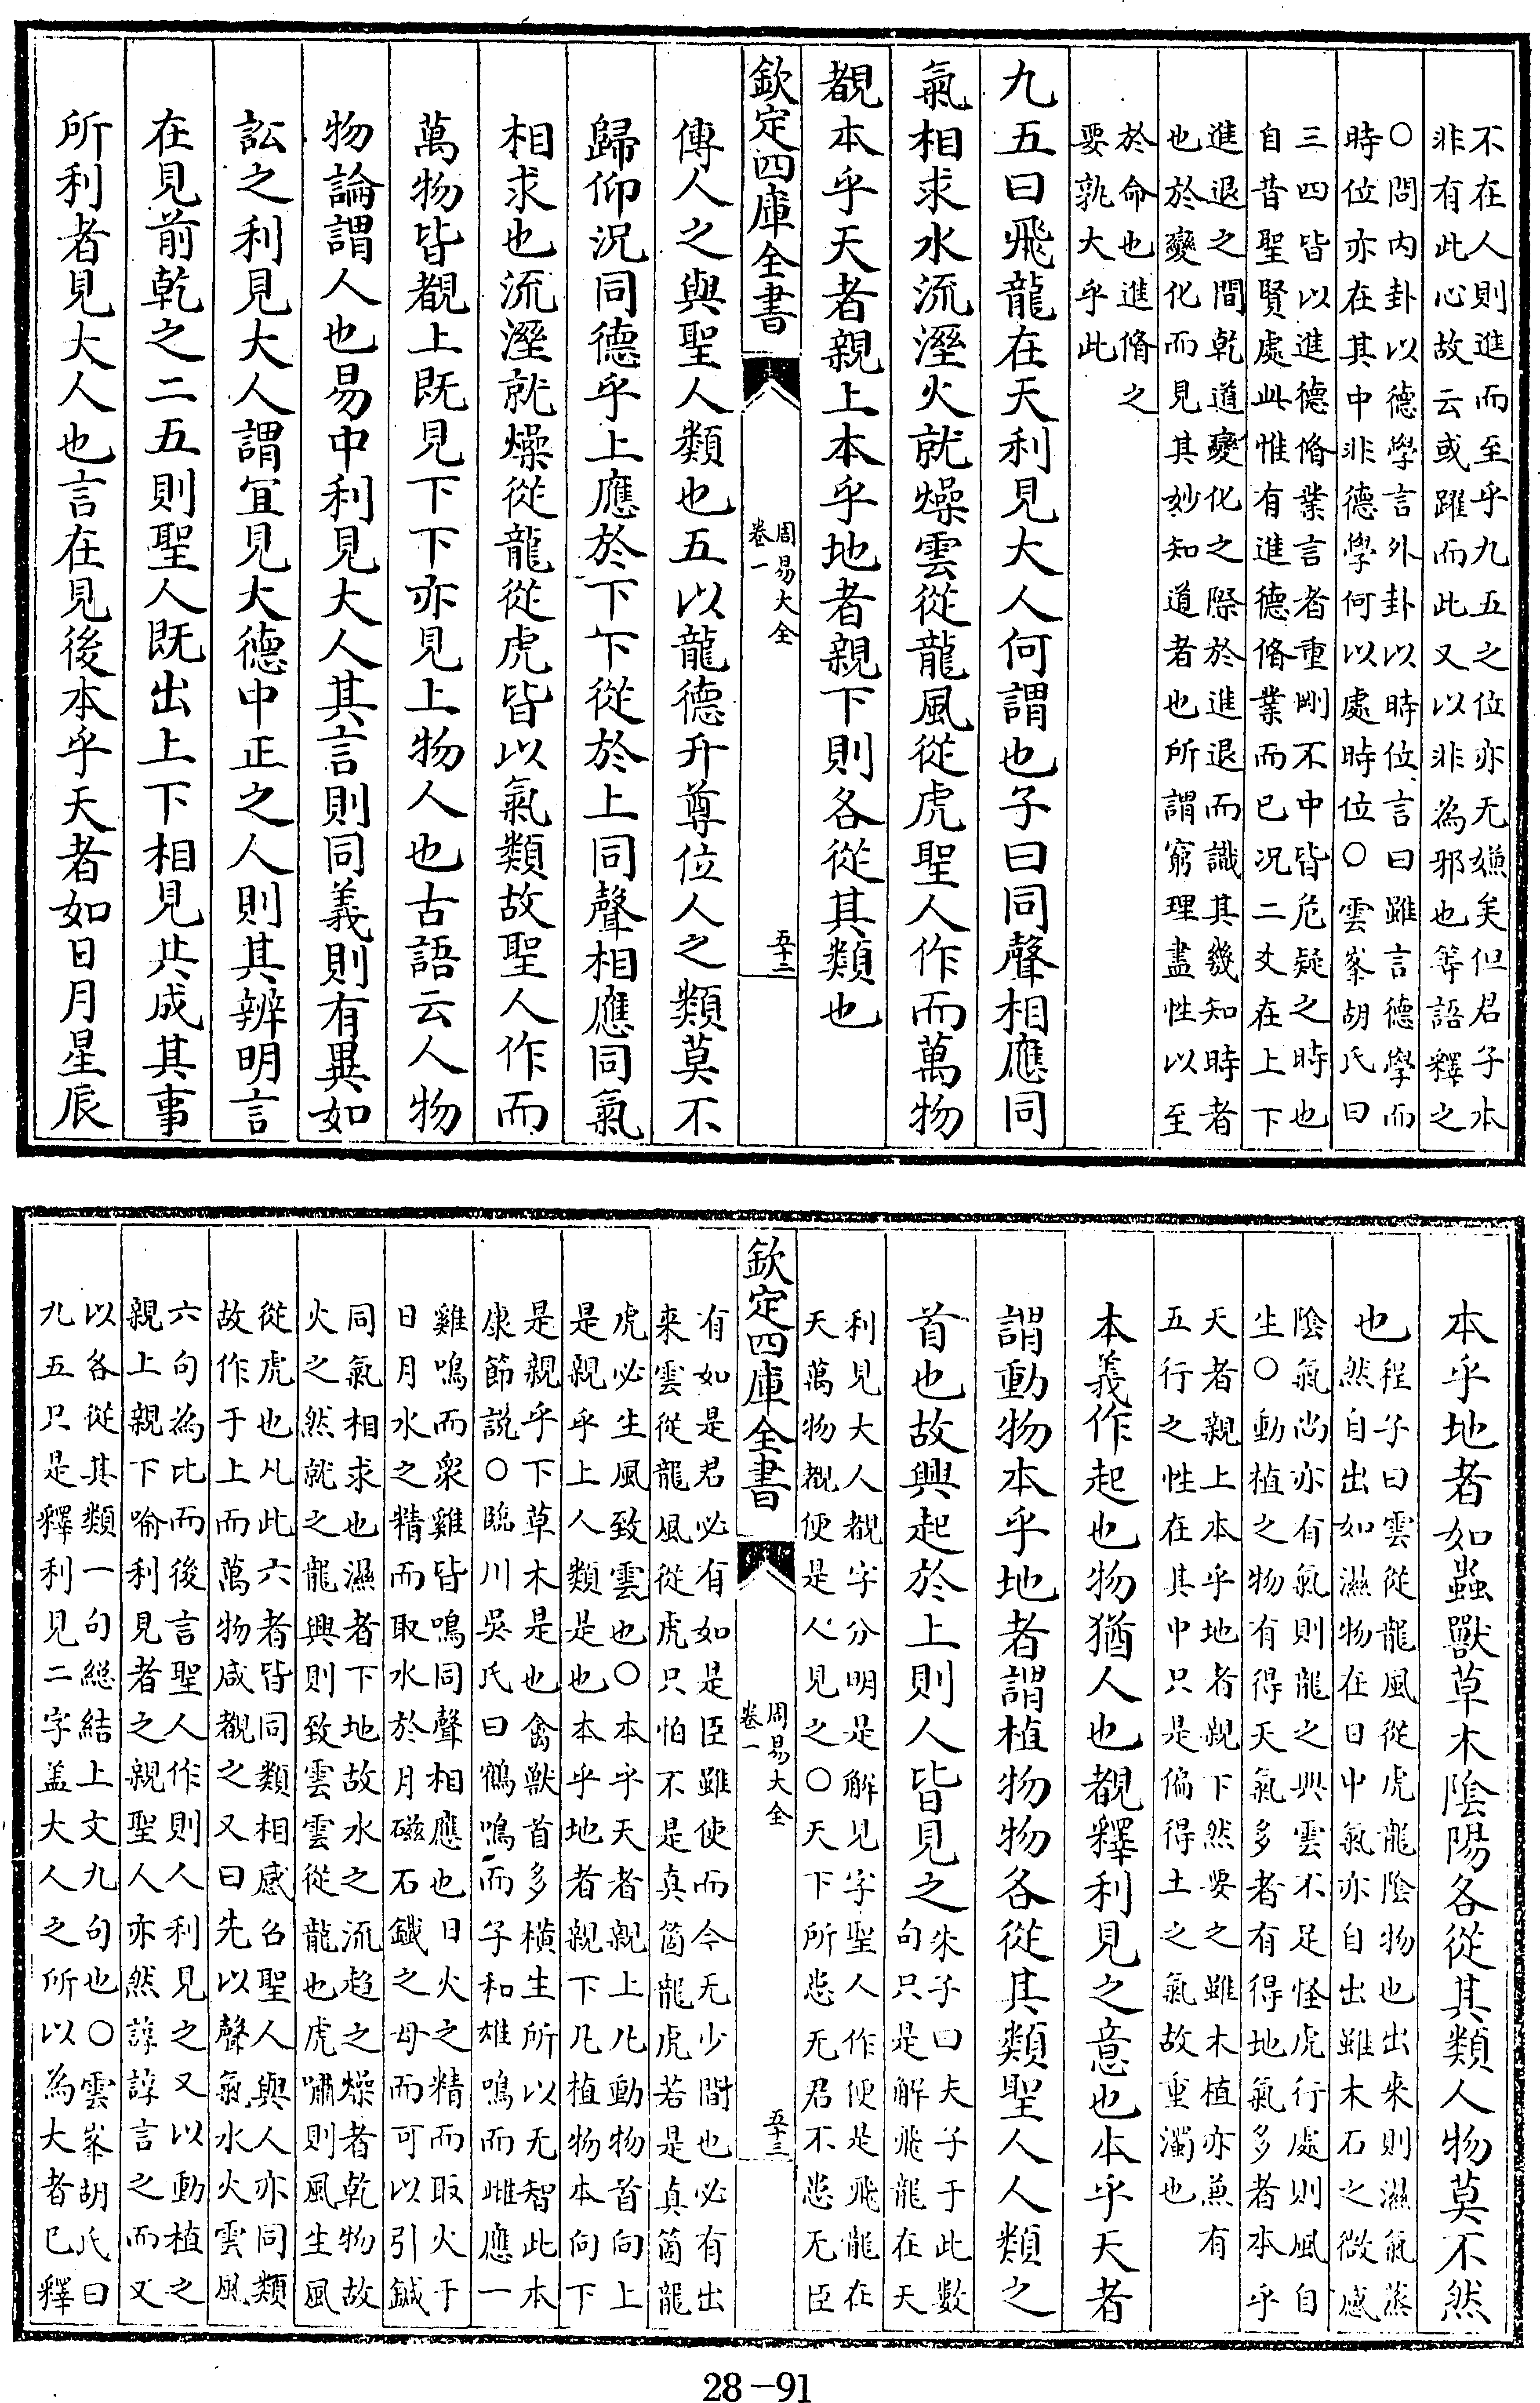 不在人則進而至乎九五之位亦无嫌矣但君子本
非有此心故云或躍而此又以非為邪也等語釋之
〇問内卦以德學言外卦以時位言曰雖言德學而
時位亦在其中非德學何以處時位〇雲峯胡氏曰
三四皆以進德脩業言者重剛不中皆危疑之時也
自昔聖賢處此惟有進德脩業而已况二爻在上下
進退之間乾道變化之際於進退而識其幾知時者
也於變化而見其妙知道者也所謂窮理盡性以至
於命也進脩之
要孰大乎此
九五曰飛龍在天利見大人何謂也子曰同聲相應同
氣相求水流溼火就燥雲從龍風從虎聖人作而萬物
覩本乎天者親上本乎地者親下則各從其類也
欽定四庫全書
周易大全
卷一
五十三
傳人之與聖人類也五以龍德升尊位人之類莫不
歸仰况同德乎上應於下下從於上同聲相應同氣
相求也流溼就燥從龍從虎皆以氣類故聖人作而
萬物皆覩上既見下下亦見上物人也古語云人物
物論謂人也易中利見大人其言則同義則有異如
訟之利見大人謂宜見大德中正之人則其辨明言
在見前乾之二五則聖人既出上下相見共成其事
所利者見大人也言在見後本乎天者如日月星辰
本乎地者如蟲獸草木陰陽各從其類人物莫不然
也程子曰雲從龍風從虎龍陰物也出來則濕氣蒸
然自出如濕物在日中氣亦自出雖木石之微感
陰氣尚亦有氣則龍之興雲不足怪虎行處則風自
生〇動植之物有得天氣多者有得地氣多者本乎
天者親上本乎地者親下然要之雖木植亦兼有
五行之性在其中只是偏得土之氣故重濁也
本義作起也物猶人也覩釋利見之意也本乎天者
謂動物本乎地者謂植物物各從其類聖人人類之
首也故興起於上則人皆見之朱子曰夫子于此數
句只是解飛龍在天
利見大人覩字分明是解見字聖人作便是飛龍在
天萬物覩便是人見之〇天下所患无君不患无臣
欽定四庫全書
周易大全
卷一
五十三
有如是君必有如是臣雖使而今无少間也必有出
来雲從龍風從虎只怕不是真箇龍虎若是真箇龍
虎必生風致雲也〇本乎天者親上凢動物首向上
是親乎上人類是也本乎地者親下凢植物本向下
是親乎下草木是也禽獸首多横生所以无智此本
康節説〇臨川吳氏曰鶴鳴而子和雄鳴而雌應一
雞鳴而衆雞皆鳴同聲相應也日火之精而取火于
日月水之精而取水於月磁石鐡之母而可以引鍼
同氣相求也濕者下地故水之流趨之燥者乾物故
火之然就之龍興則致雲雲從龍也虎嘯則風生風
從虎也凢此六者皆同類相感召聖人與人亦同類
故作于上而萬物咸覩之又曰先以聲氣水火雲風
六句為比而後言聖人作則人利見之又以動植之
親上親下喻利見者之親聖人亦然諄諄言之而又
以各從其類一句總結上文九句也〇雲峯胡氏曰
九五只是釋利見二字盖大人之所以為大者已釋
28-91